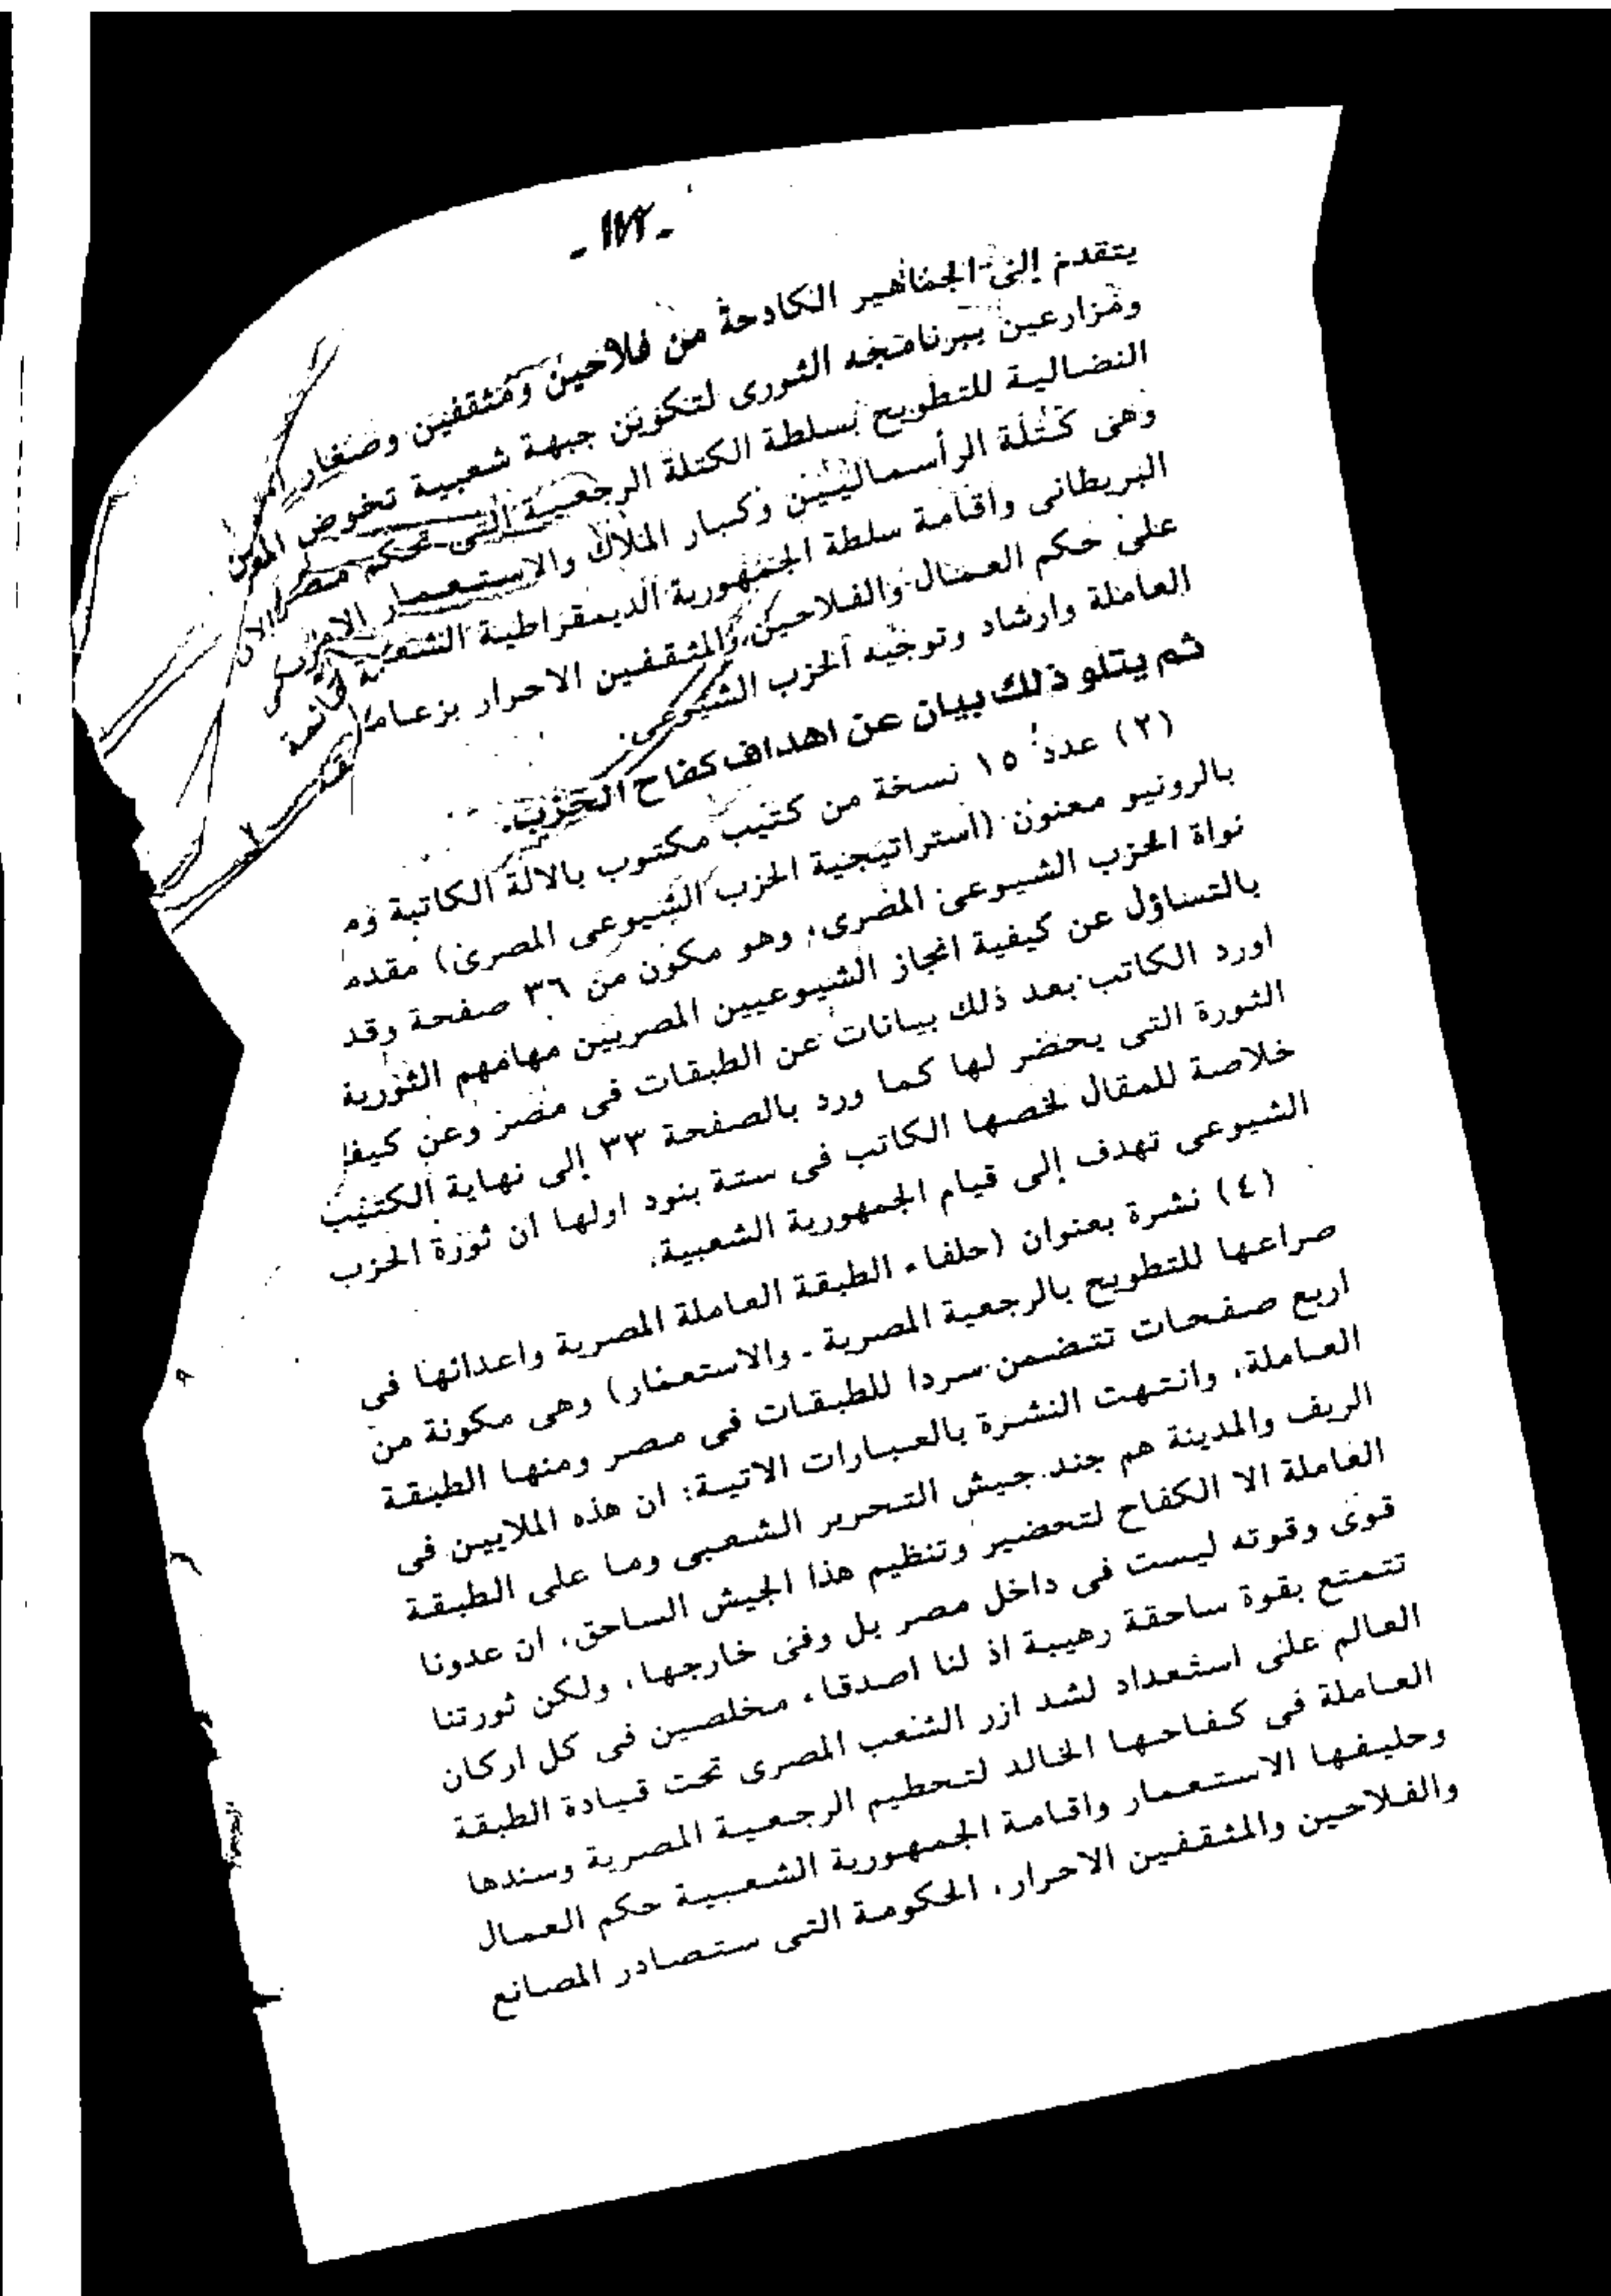 يتقدم إلى الجماهير الكادحة من فلاحين ومثقفين وصغار
ومزارعين ببرنامجه الثورى لتكوين جبهة شعبية تخوض
النضالية للتطويح بسلطة الكتلة الرجعية التى تحكم مصر الان
وهى كتلة الرأسماليين وكبار الملاك والاستعمار
البريطانى واقامة سلطة الجمهورية الديمقراطية الشعبية
على حكم العمال والفلاحين والمثقفين الاحرار بزعامة
العاملة وارشاد وتوجيه الحزب الشيوعى.
ثم يتلو ذلك بيان عن اهداف كفاح الحزب.
(٢) عدد ١٥ نسخة من كتيب مكتوب بالالة الكاتبة
بالرونيو معنون (استراتيجية الحزب الشيوعى المصرى)
نواة الحزب الشيوعى المصرى، وهو مكون من ٣٦ صفحة وقد
بالتساؤل عن كيفية انجاز الشيوعيين المصريين مهامهم الثورية
اورد الكاتب بعد ذلك بيانات عن الطبقات فى مصر وعن
الثورة التى يحضر لها كما ورد بالصفحة ٣٣ إلى نهاية الكتيب
خلاصة للمقال لخصها الكاتب فى ستة بنود اولها ان ثورة الحزب
الشيوعى تهدف إلى قيام الجمهورية الشعبية.
(٤) نشرة بعنوان (حلفاء الطبقة العاملة المصرية واعدائها فى
صراعها للتطويح بالرجعية المصرية - والاستعمار) وهى مكونة من
اربع صفحات تتضمن سردا للطبقات فى مصر ومنها الطبقة
العاملة، وانتهت النشرة بالعبارات الاتية: ان هذه الملايين فى
الريف والمدينة هم جند جيش التحرير الشعبى وما على الطبقة
العاملة الا الكفاح لتحضير وتنظيم هذا الجيش الساحق، ان عدونا
قوى وقوته ليست فى داخل مصر بل وفى خارجها، ولكن ثورتنا
تتمتع بقوة ساحقة رهيبة اذ لنا اصدقاء مخلصين فى كل اركان
العالم على استعداد لشد ازر الشعب المصرى تحت قيادة الطبقة
العاملة فى كفاحها الخالد لتحطيم الرجعية المصرية وسندها
وحليفها الاستعمار واقامة الجمهورية الشعبية حكم العمال
والفلاحين والمثقفين الاحرار، الحكومة التى ستصادر المصانع